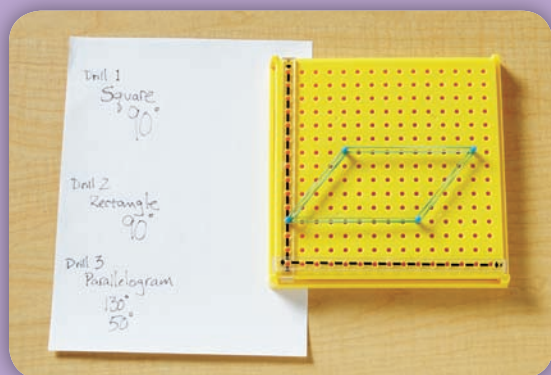 Drill 1
Square
90°
Drill 2
Rectangle
90°
Drill 3
Parallelogram
130°
50°